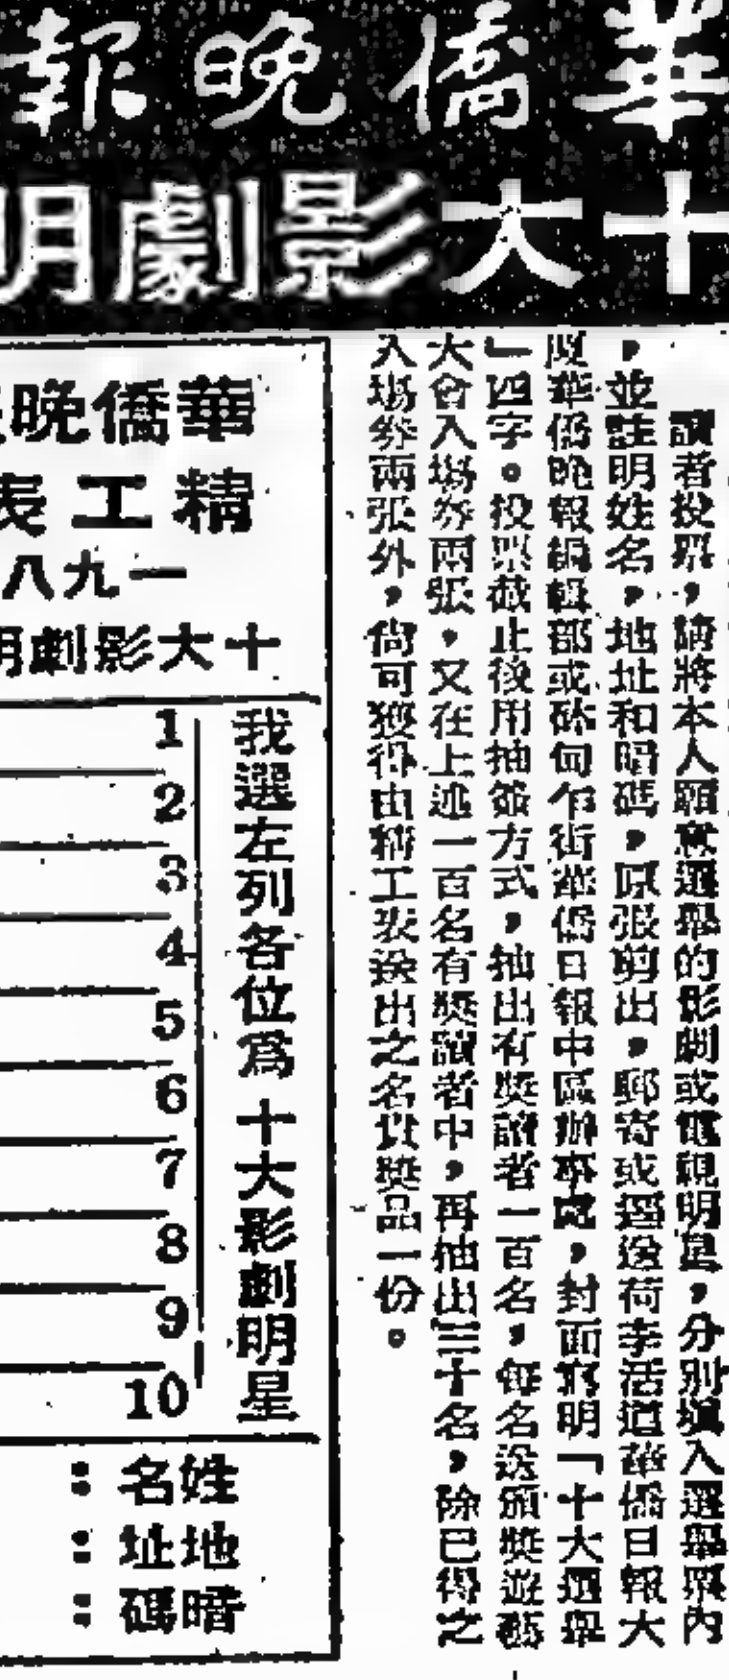 華僑晚報
十大影劇明
讀者投票，請將本人願意選舉的影劇或電視明星，分別填入選舉票內
，並註明姓名，地址和暗碼，原張剪出，郵寄或遞送荷李活道華僑日報大
廈華僑晚報編輯部或砵甸乍街華僑日報中區辦事處，封面寫明「十大選舉
」四字。投票截止後用抽籤方式，抽出有獎讀者一百名，每名送頒獎遊藝
大會入場券兩張，又在上述一百名有獎讀者中，再抽出三十名，除已得之
入場券兩張外，尚可獲得由精工表送出之名貴獎品一份。
華僑晚
精工表
一九八
十大影劇明
我選左列各位為十大影劇明星
1
2
3
4
5
6
7
8
9
10
姓名：
地址：
暗碼：